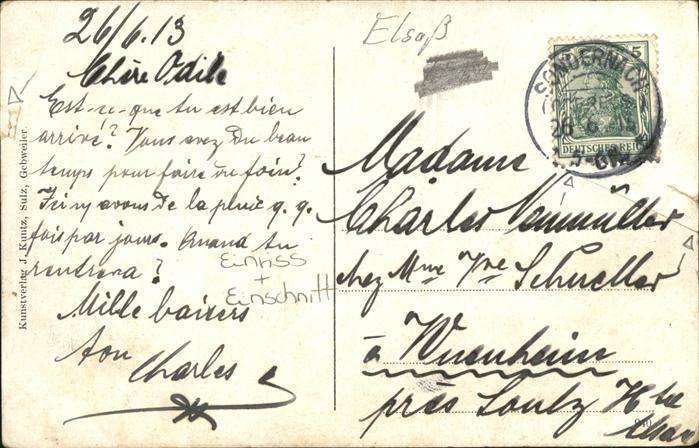 26/6.13
Chère Odile
Est-ce-que tu est bien
arrivé? Vous avez Du beau
temps pour faire du foin?
Ici ny avons De la pluie q. q.
fois par jours. Quand tu
rentrera?
Mille baisers
ton
Charles
Einriss
+
Einschnitt
Kunstverlag J. Kuntz, Sulz, Gebweiler.
Elsaß
SONDERNACH
26 6
5
DEUTSCHES REICH
Madame
Charles
chez Mme Vve Schueller
à Wuenheim
près Soultz Hte